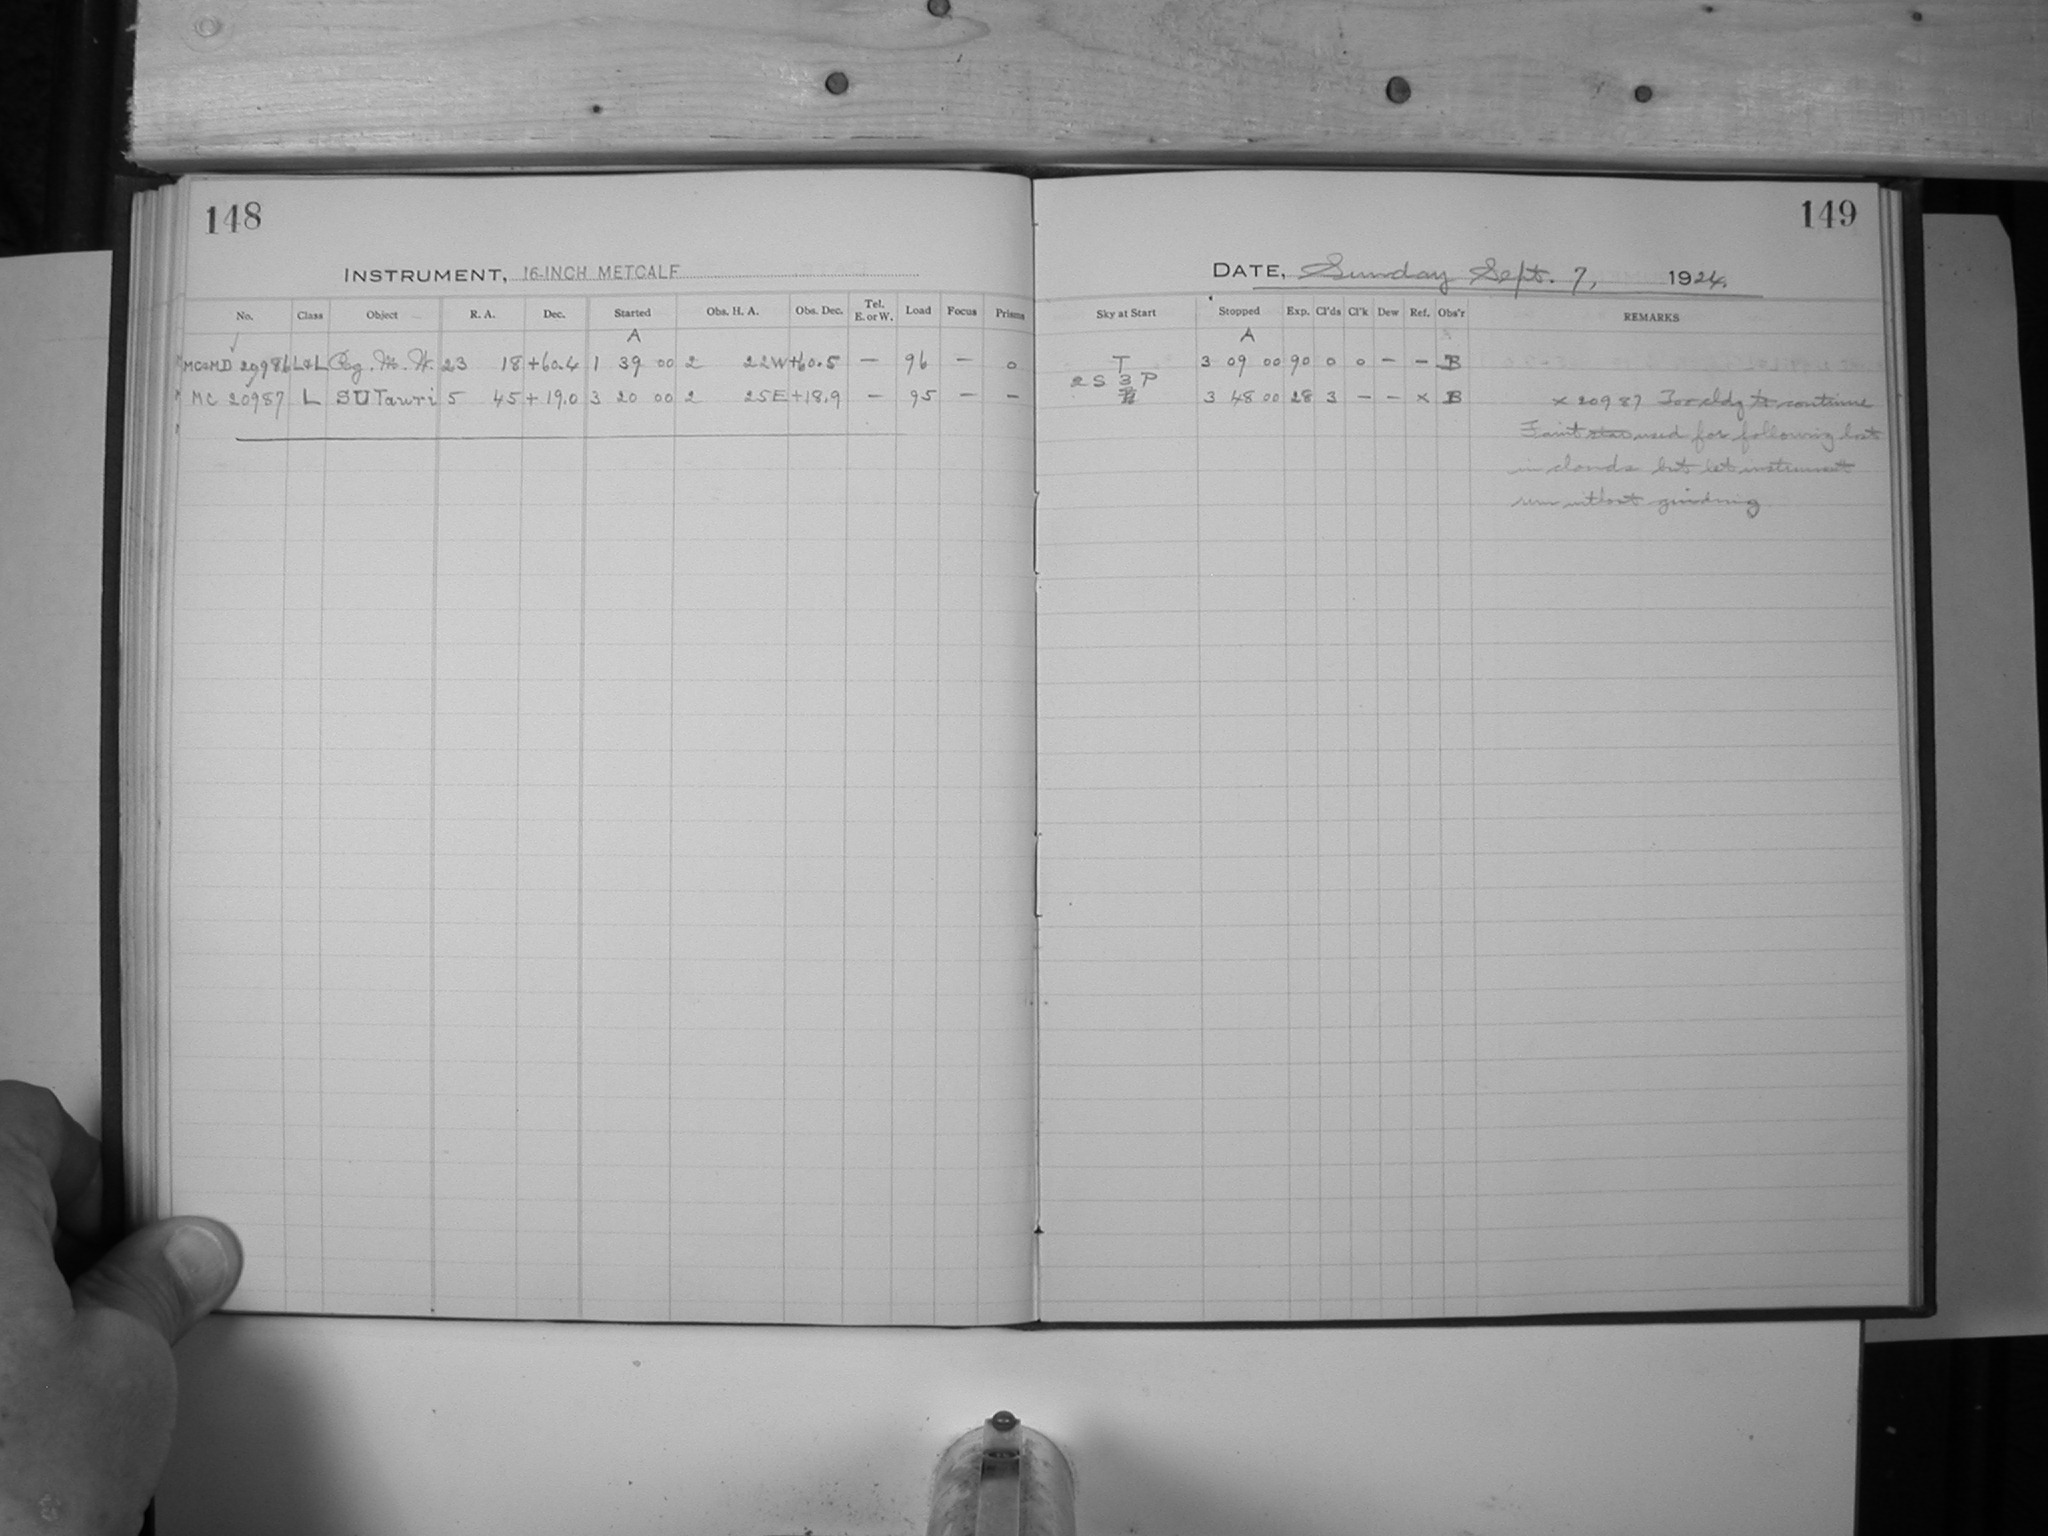 148
INSTRUMENT, 16-INCH METCALF
No. Class Object R. A. Dec. Started Obs. H. A. Obs. Dec. Tel. E. or W. Load Focus Prisms
A
MC&MD 20986 L&L Reg. M. H. 23 18 +60.4 1 39 00 2 22W +60.5 — 96 — 0
MC 20987 L SU Tauri 5 45 +19.0 3 20 00 2 25E +18.9 — 95 — —
149
DATE, Sunday Sept. 7, 1924.
Sky at Start Stopped Exp. Cl'ds Cl'k Dew Ref. Obs'r REMARKS
A
T 3 09 00 90 0 0 — — B
2 S 3 P
3 48 00 28 3 — — x B x 20987 Too cldy to continue
Faint star used for following lost
in clouds but let instrument
run without guiding